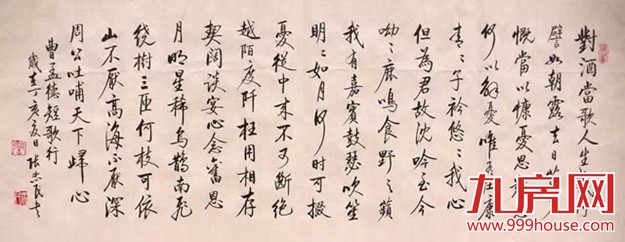 對酒當歌人生幾何
譬如朝露去日苦多
慨當以慷憂思難忘
何以解憂唯有杜康
青々子衿悠々我心
但為君故沈吟至今
呦々鹿鳴食野之蘋
我有嘉賓鼓瑟吹笙
明明如月何時可掇
憂從中來不可斷絕
越陌度阡枉用相存
契闊談宴心念舊恩
月明星稀烏鵲南飛
繞樹三匝何枝可依
山不厭高海不厭深
周公吐哺天下歸心
曹孟德短歌行
歲在丁亥夏日張
九房网
www.999house.com